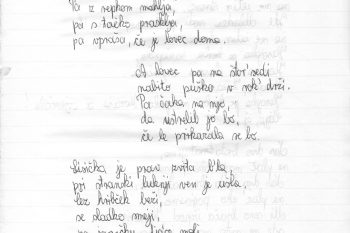 Pa z repkom mahlja,
pa s tačko praska,
pa vpraša, če je lovec doma.
A lovec pa na štor sedi
nabito puško v rok' drži.
Pa čaka na njo,
da ustrelil jo bo,
če le prikazala se bo.
Lisička je prav zvita b'la,
pri stranski luknji ven je ušla,
čez hribček beži,
se sladko smeji,